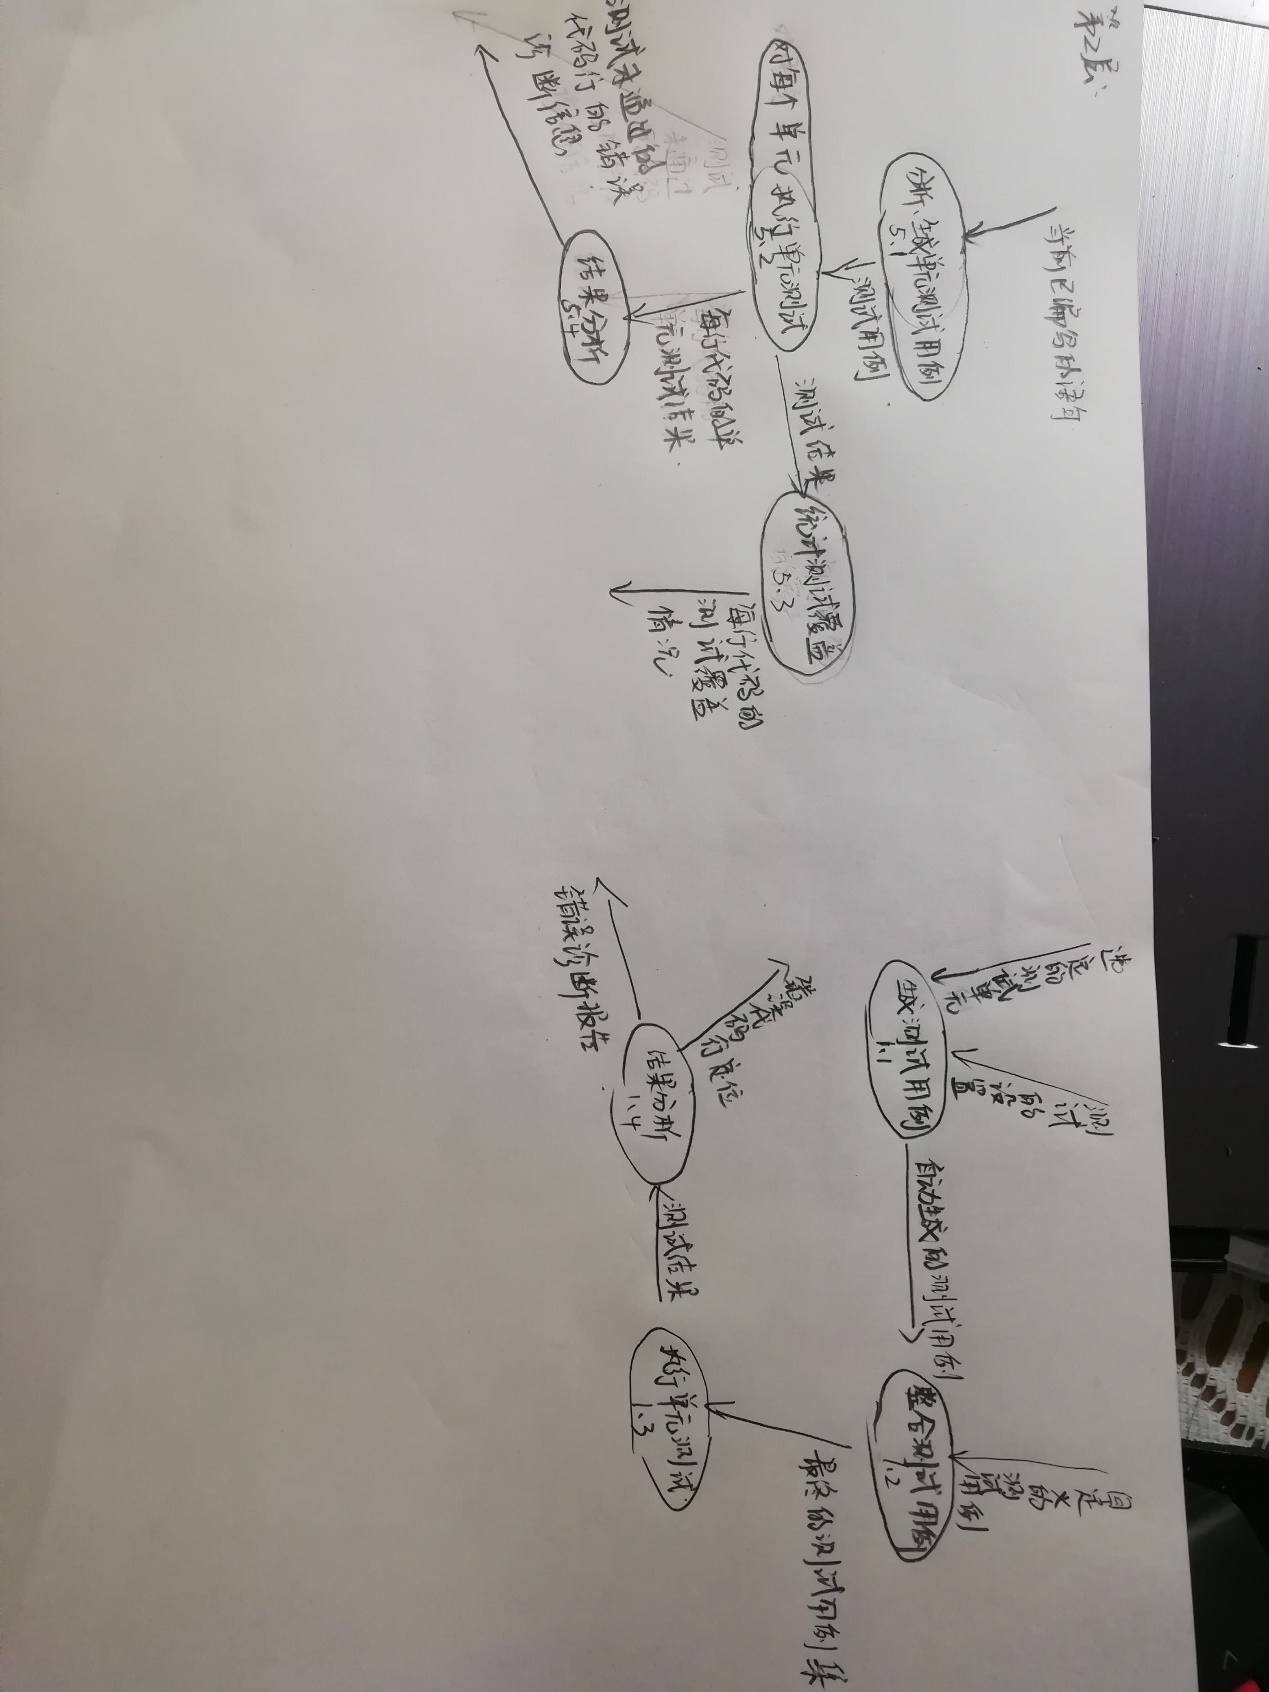 第2层:
当前已编写的语句
分析、生成单元测试用例
5.1
测试用例
对每个单元执行单元测试
5.2
测试结果
统计测试覆盖
5.3
每行代码的
测试覆盖
情况
每行代码的单
元测试结果
结果分析
5.4
测试未通过的
代码行的错误
诊断信息
选定的测试单元
测试的设置
生成测试用例
1.1
自动生成的测试用例
自定义的测试用例
整合测试用例
1.2
最终的测试用例集
执行单元测试
1.3
测试结果
结果分析
1.4
错误代码行定位
错误诊断报告